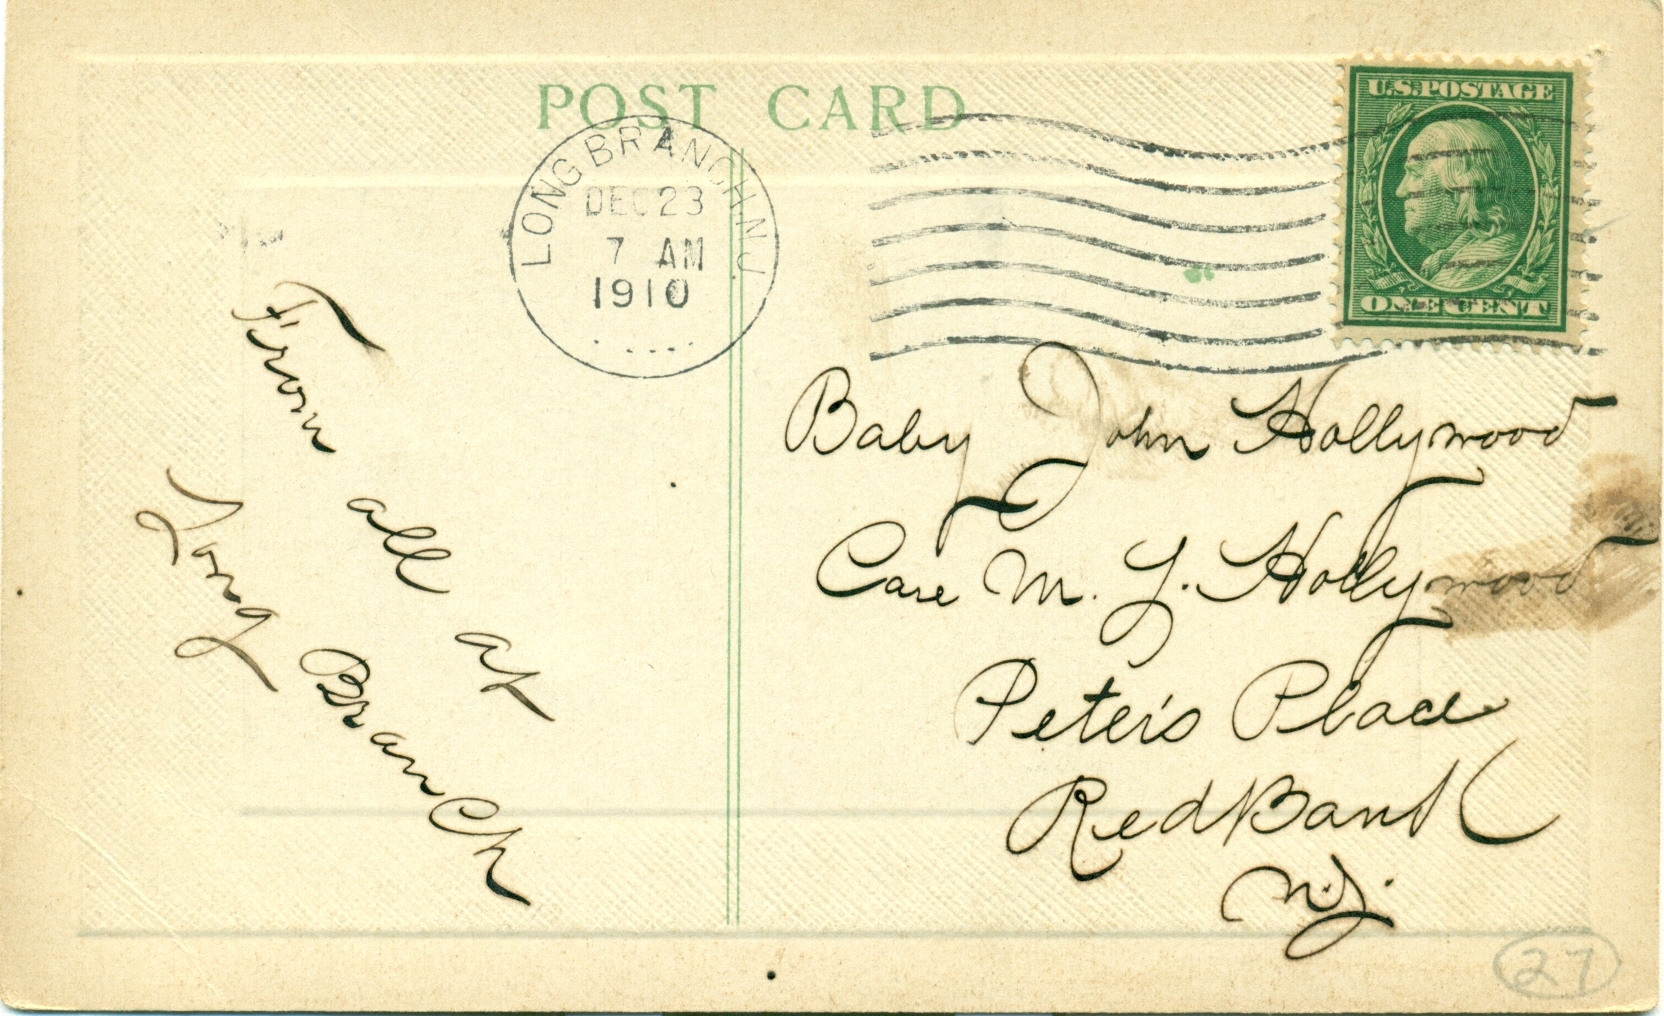 POST CARD
LONG BRANCH, N.J.
DEC 23
7 AM
1910
U.S. POSTAGE
ONE CENT
From all at
Long Branch
Baby John Hollywood
Care M. J. Hollywood
Peter's Place
Red Bank
N.J.
27